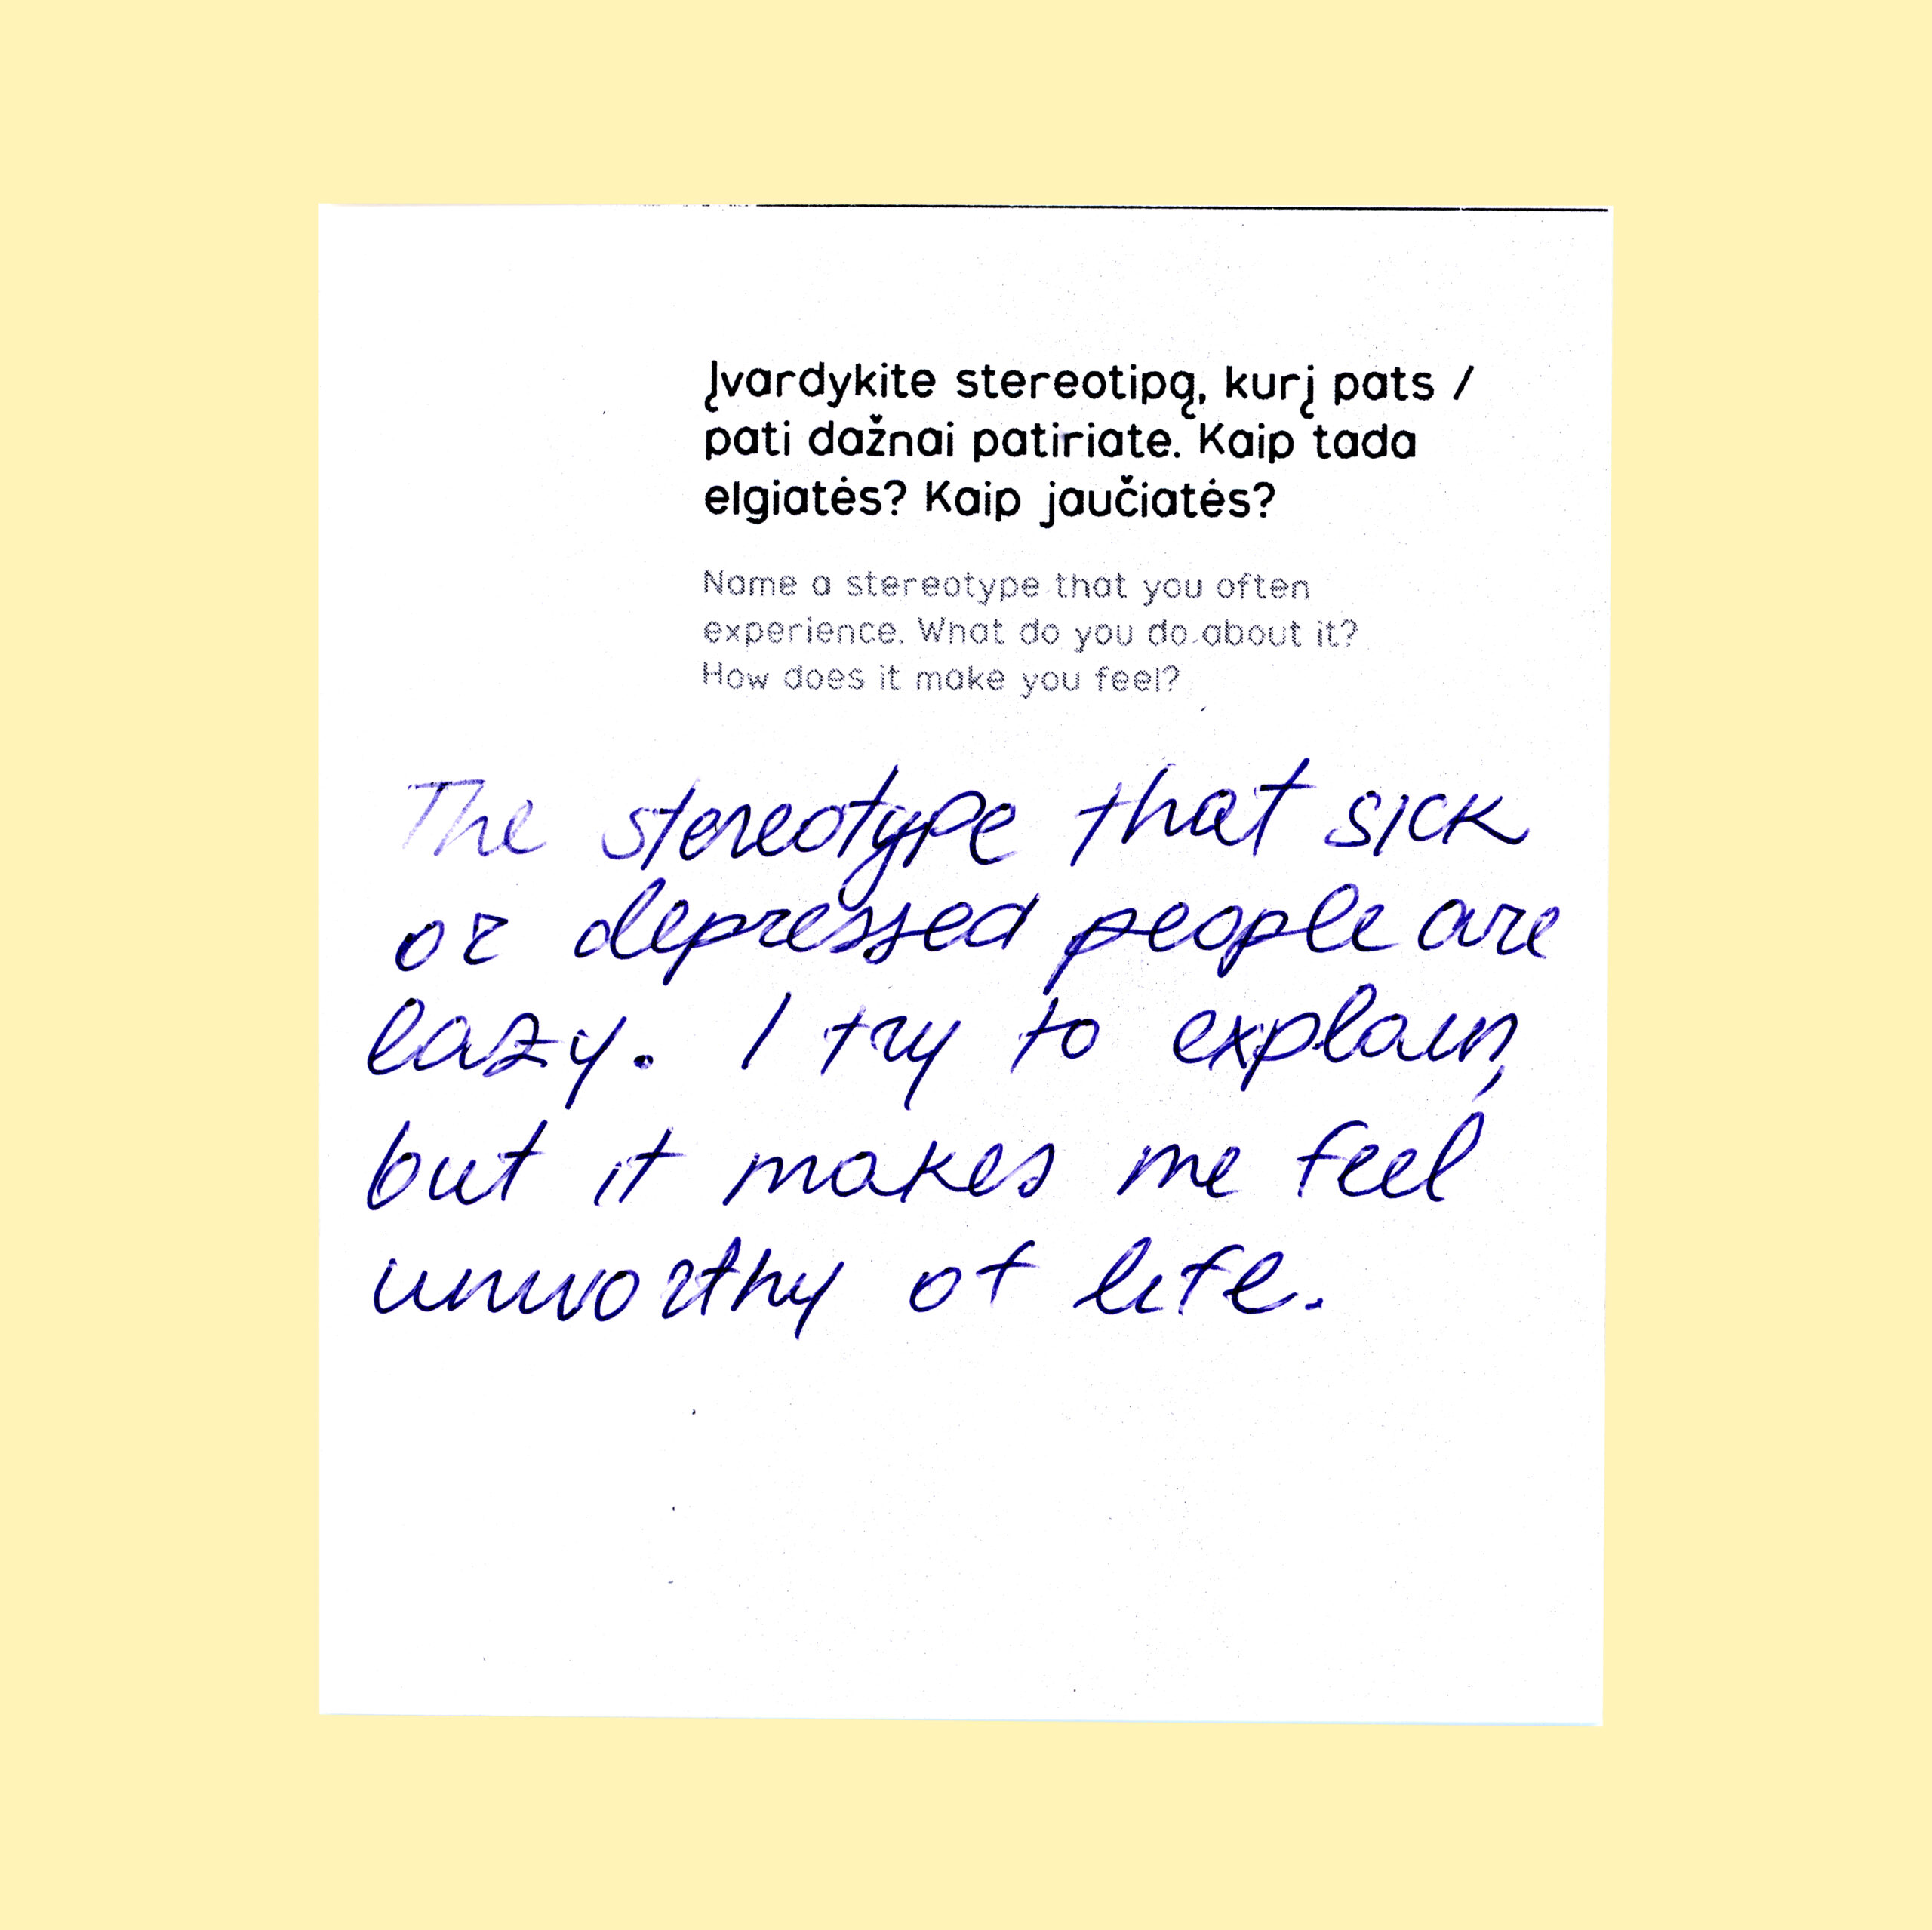 Įvardykite stereotipą, kurį pats /
pati dažnai patiriate. Kaip tada
elgiatės? Kaip jaučiatės?
Name a stereotype that you often
experience. What do you do about it?
How does it make you feel?
The stereotype that sick
or depressed people are
lazy. I try to explain,
but it makes me feel
unworthy of life.